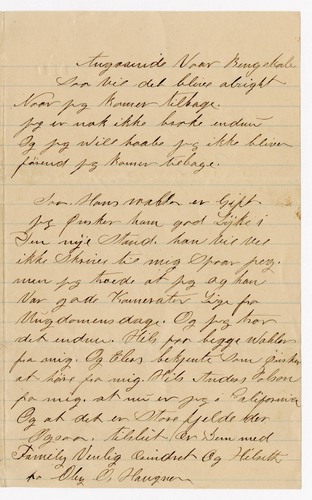 Angaaende Vaar Pengeskole
saa vil det blive alright
Naar jeg komer tilbage.
jeg er nok ikke broke endnu
Og jeg will haabe jeg ikke bliver
førend jeg komer tebage.
Saa Hans Wahler er Gift
jeg Ønsker ham god Lykke i
Den nye Stand. han vil vel
ikke Skrive til mig Spaar jeg.
men jeg troede at jeg og han
Var gode Kamerater Lige fra
Ungdomens dage. Og jeg tror
det endnu. Hils fra begge Wahler
fra mig. Og Eleas bekjente som Ønsker
at høre fra mig. Hils Anders Folson
fra mig, at nu er jeg i California
Og at det er Store fjelde der
Ogsaa. tilslut er Du med
Family Venlig Erindret Og Hilset
fra Oley O. Haugner